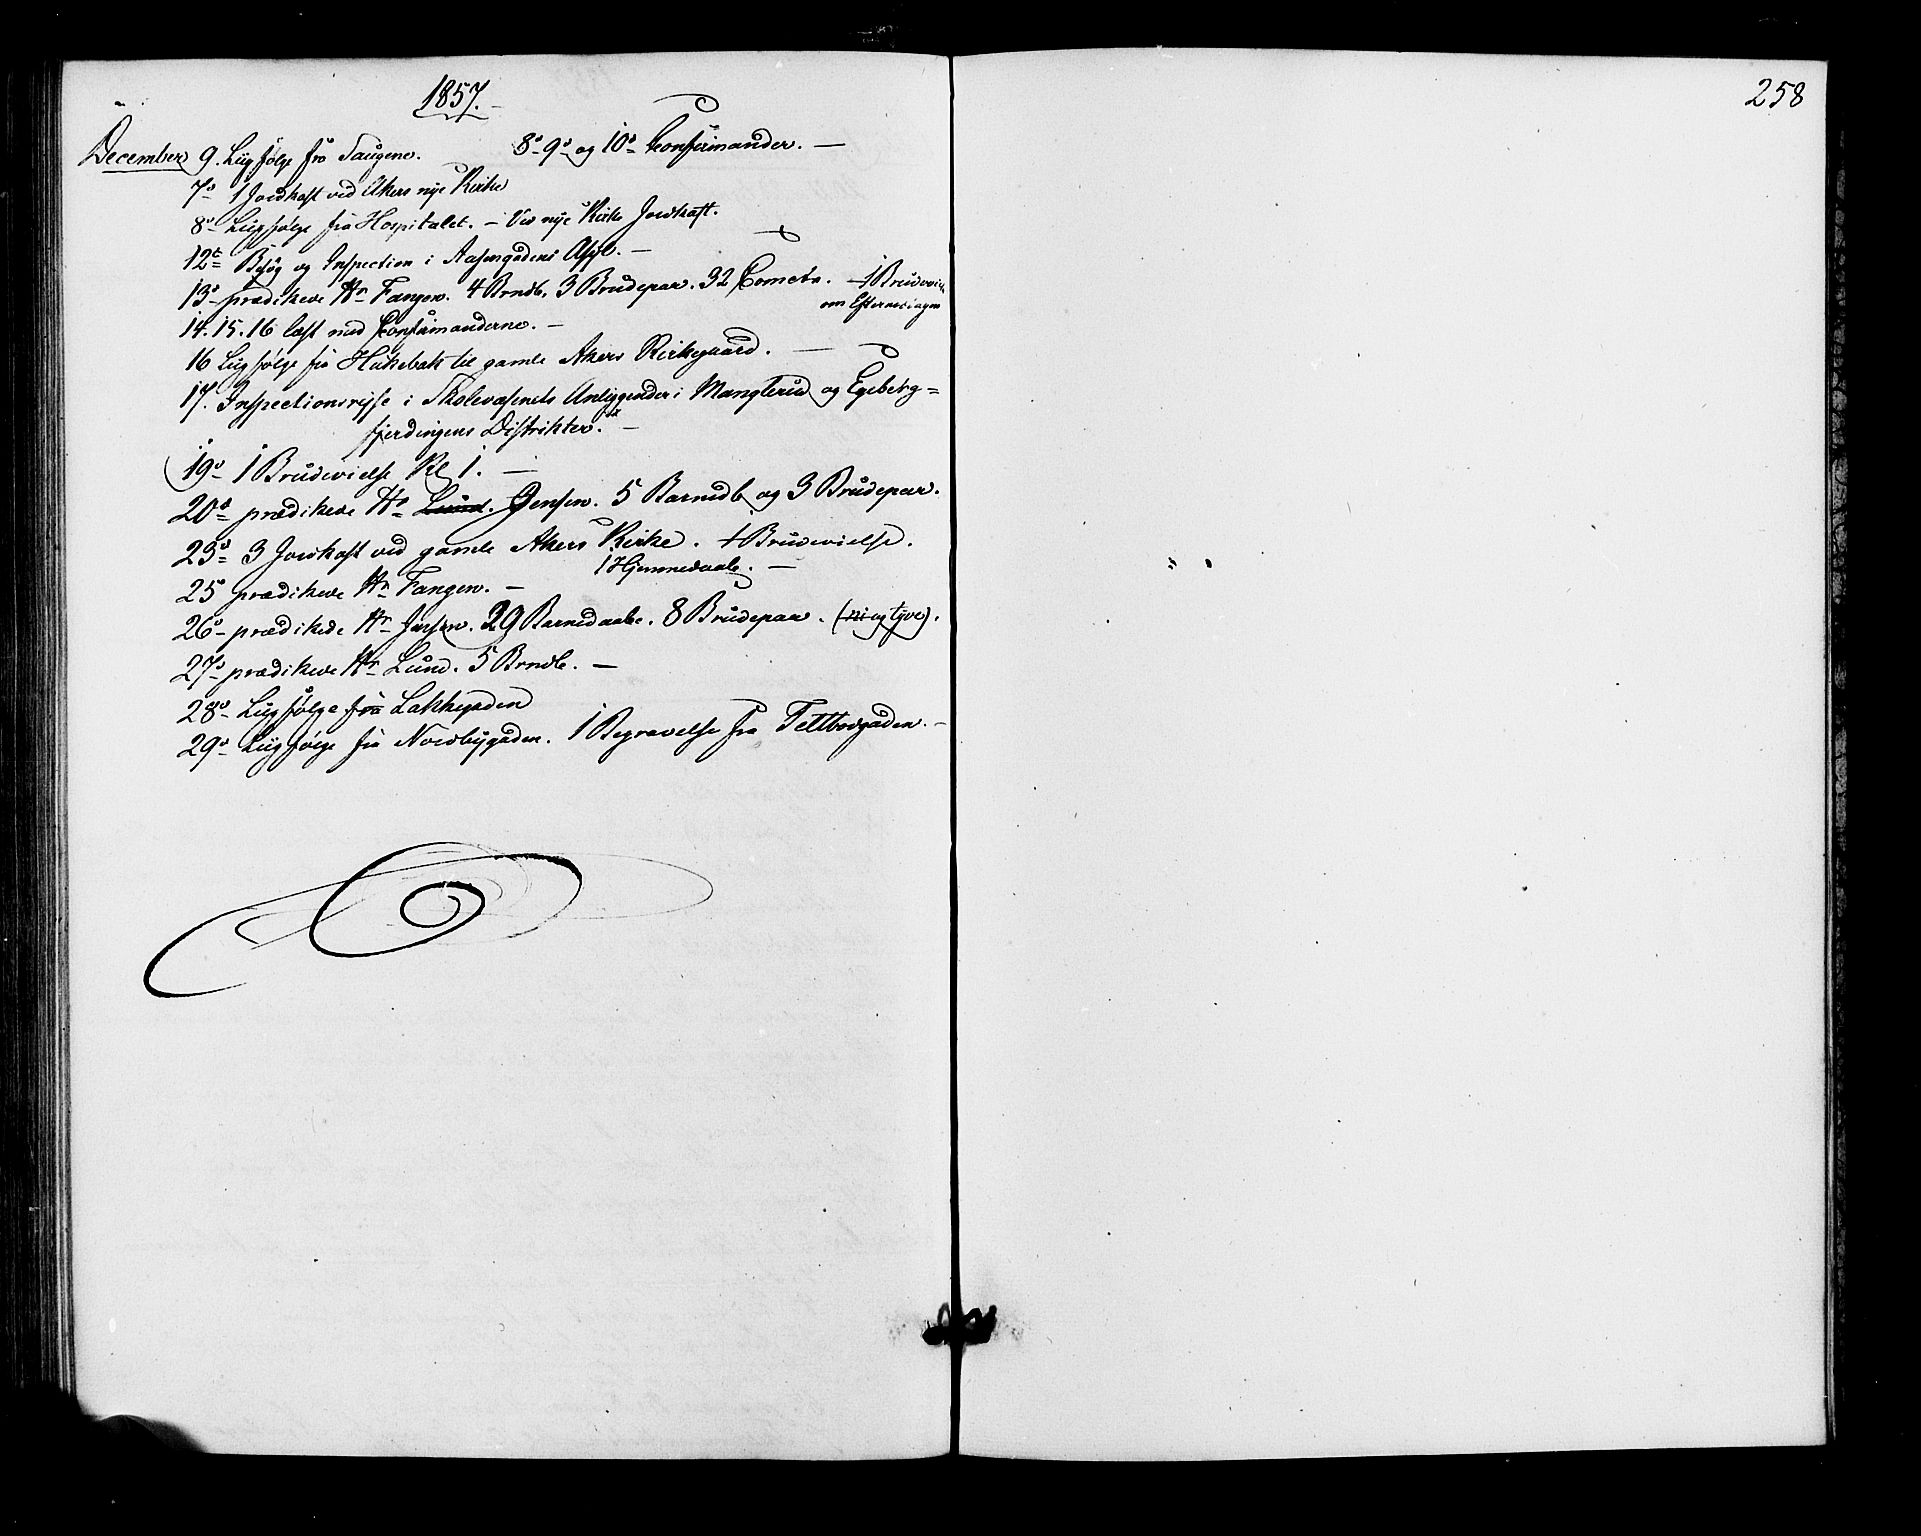 1857.
258
December 9. Liigfølge fra Saugene. 8d 9d og 10d Confirmander. —
7d 1 Jordkast ved Akers nye Kirke
8d Liigfølge fra Hospitalet. — Ved nye Kirke Jordkast.
12te Besøg og Inspection i Asyl. —
13d prædikede Hr Fangen. 4 Brndb. 3 Brudepar. 32 Comcter. 1 Brudevielse
om Eftermiddagen
14. 15. 16 læst med Confirmanderne. —
16 Liigfølge fra til gamle Akers Kirkegaard. —
17. Inspectionsrejse i Skolevæsenets Anliggender i Manglerud og Egeberg=
fjerdingens Distrikter. —
19d 1 Brudevielse Kl 1. —
20d prædikede Hr Lund. Jensen. 5 Barnedb og 3 Brudepar.
23d 3 Jordkast ved gamle Akers Kirke. 1 Brudevielse.
1 Hjemmedaab. —
25 prædikede Hr Fangen. —
26d prædikede Hr Jensen. 29 Barnedaabe. 8 Brudepar. (ni og tyve).
27d prædikede Hr Lund. 5 Brndb. —
28d Liigfølge fra Lakkegaden
29d Liigfølge fra Nordbygaden. 1 Begravelse fra Teltbodgaden. —